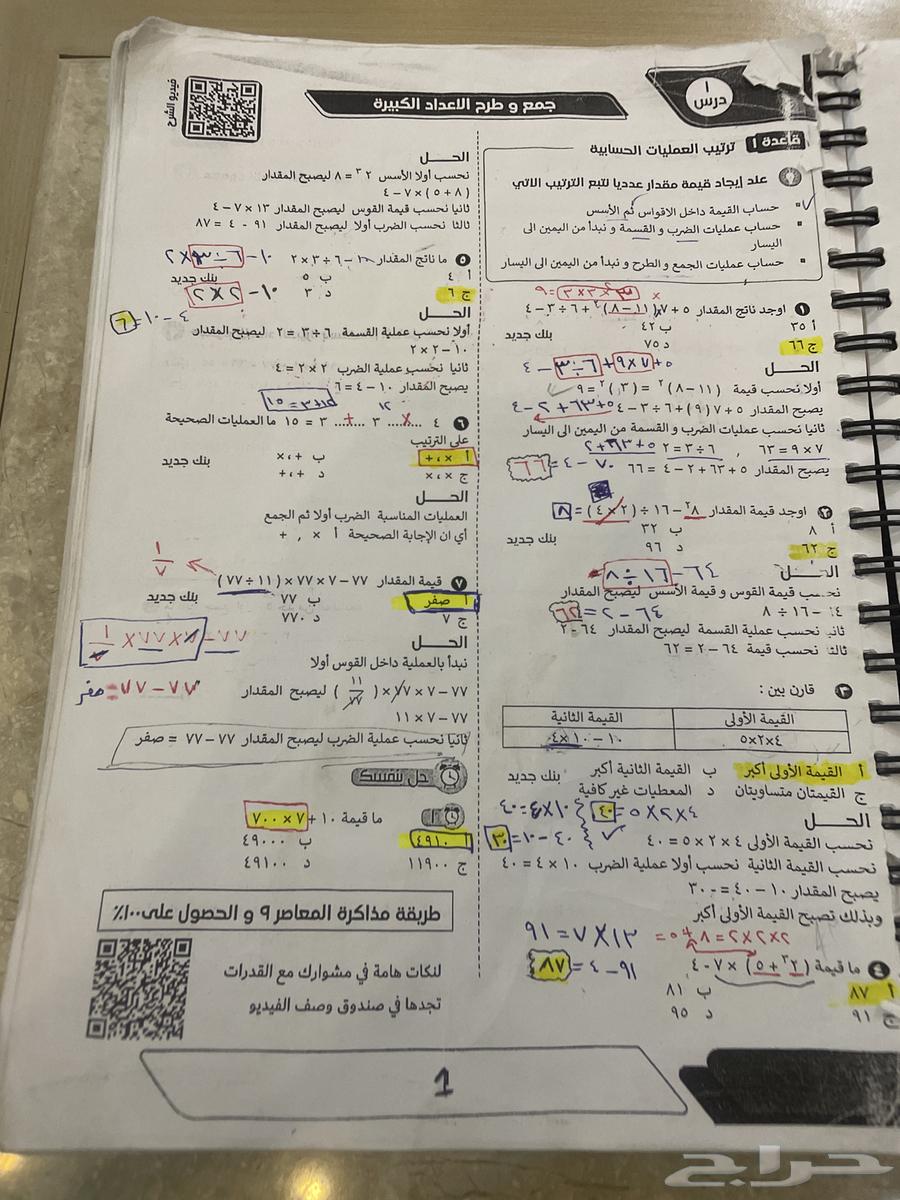 درس ١
جمع و طرح الاعداد الكبيرة
فيديو الشرح
قاعدة ١ ترتيب العمليات الحسابية
عند إيجاد قيمة مقدار عدديا نتبع الترتيب الاتي
حساب القيمة داخل الاقواس ثم الأسس
حساب عمليات الضرب و القسمة و نبدأ من اليمين الى
اليسار
حساب عمليات الجمع و الطرح و نبدأ من اليمين الى اليسار
٩ = ٣×٣×٣
١ اوجد ناتج المقدار ٥ + ٧×(١١−٨)² + ٦ ÷ ٣ − ٤
أ ٣٥ ب ٤٢ بنك جديد
ج ٦٦ د ٧٥
الحل
٥ + ٧×٩ + ٦÷٣ − ٤
أولا نحسب قيمة (١١−٨)² = (٣)² = ٩
يصبح المقدار ٥ + ٧ (٩) + ٦ ÷ ٣ − ٤
٥ + ٦٣ + ٢ − ٤
ثانيا نحسب عمليات الضرب و القسمة من اليمين الى اليسار
٧ × ٩ = ٦٣ , ٦ ÷ ٣ = ٢
٥ + ٦٣ + ٢
يصبح المقدار ٥ + ٦٣ + ٢ − ٤ = ٦٦
٧٠ − ٤ = ٦٦
٢ اوجد قيمة المقدار ٨² − ١٦ ÷ (٢ × ٤) = ٨
أ ٨ ب ٣٢ بنك جديد
ج ٦٢ د ٩٦
الحل
٦٤ − ١٦ ÷ ٨
نحسب قيمة القوس و قيمة الأسس ليصبح المقدار
٦٤ − ١٦ ÷ ٨
٦٤ − ٢ = ٦٢
ثانيا نحسب عملية القسمة ليصبح المقدار ٦٤ − ٢
ثالثا نحسب قيمة ٦٤ − ٢ = ٦٢
٣ قارن بين :
القيمة الأولى القيمة الثانية
٤×٢×٥ ١٠ − ١٠×٤
أ القيمة الأولى أكبر ب القيمة الثانية أكبر بنك جديد
ج القيمتان متساويتان د المعطيات غير كافية
الحل
٤×٢×٥ = ٤٠
١٠×٤ = ٤٠
نحسب القيمة الأولى ٤ × ٢ × ٥ = ٤٠
٤٠ − ١٠ = ٣٠
نحسب القيمة الثانية نحسب أولا عملية الضرب ١٠ × ٤ = ٤٠
يصبح المقدار ١٠ − ٤٠ = −٣٠
وبذلك تصبح القيمة الأولى أكبر
٢×٢×٢ = ٨ + ٥ =
١٣ × ٧ = ٩١
٤ ما قيمة (٢³ + ٥) × ٧ − ٤
٩١ − ٤ = ٨٧
أ ٨٧ ب ٨١
ج ٩١ د ٩٥
الحل
نحسب أولا الأسس ٢³ = ٨ ليصبح المقدار
(٨ + ٥) × ٧ − ٤
ثانيا نحسب قيمة القوس ليصبح المقدار ١٣ × ٧ − ٤
ثالثا نحسب الضرب أولا ليصبح المقدار ٩١ − ٤ = ٨٧
٥ ما ناتج المقدار ١٠ − ٦ ÷ ٣ × ٢
١٠ − ٦÷٣ × ٢
أ ٤ ب ٥ بنك جديد
ج ٦ د ٣
١٠ − ٢×٢
الحل
١٠ − ٤ = ٦
أولا نحسب عملية القسمة ٦ ÷ ٣ = ٢ ليصبح المقدار
١٠ − ٢ × ٢
ثانيا نحسب عملية الضرب ٢ × ٢ = ٤
يصبح المقدار ١٠ − ٤ = ٦
١٢+٣ = ١٥
١٢
٦ ٤ ..×.. ٣ ..+.. ٣ = ١٥ ما العمليات الصحيحة
على الترتيب
أ ×،+ ب +،× بنك جديد
ج ×،× د +،+
الحل
العمليات المناسبة الضرب أولا ثم الجمع
أي ان الإجابة الصحيحة أ × , +
١/٧
٧ قيمة المقدار ٧٧ − ٧ × ٧٧ × (١١ ÷ ٧٧)
أ صفر ب ٧٧ بنك جديد
ج ٧ د ٧٧٠
الحل
٧٧ − ٧ × ٧٧ × ١/٧
نبدأ بالعملية داخل القوس أولا
٧٧ − ٧ × ٧٧ × (١١/٧٧) ليصبح المقدار
٧٧ − ٧٧ = صفر
٧٧ − ٧ × ١١
ثانيا نحسب عملية الضرب ليصبح المقدار ٧٧ − ٧٧ = صفر
حل بنفسك
١ ما قيمة ١٠ + ٧ × ٧٠٠
أ ٤٩١٠ ب ٤٩٠٠٠
ج ١١٩٠٠ د ٤٩١٠٠
طريقة مذاكرة المعاصر ٩ و الحصول على ١٠٠٪
لنكات هامة في مشوارك مع القدرات
تجدها في صندوق وصف الفيديو
1
حراج